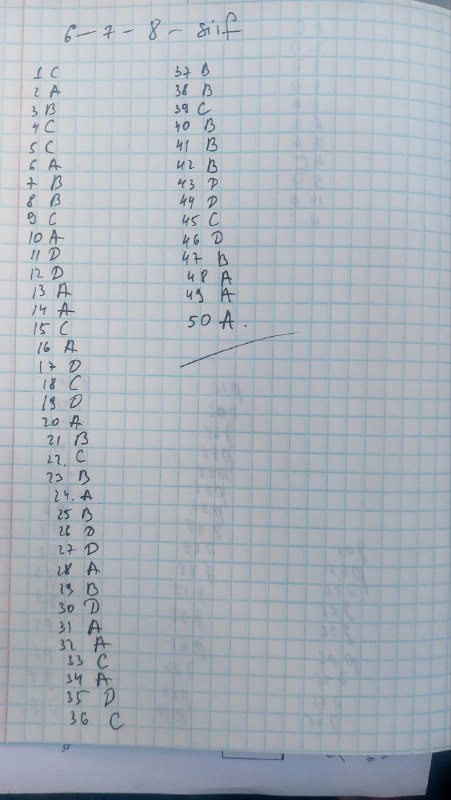 6-7-8- siif
1 C
2 A
3 B
4 C
5 C
6 A
7 B
8 B
9 C
10 A
11 D
12 D
13 A
14 A
15 C
16 A
17 D
18 C
19 D
20 A
21 B
22. C
23 B
24. A
25 B
26 D
27 D
28 A
29 B
30 D
31 A
32 A
33 C
34 A
35 D
36 C
37 B
38 B
39 C
40 B
41 B
42 B
43 D
44 D
45 C
46 D
47 B
48 A
49 A
50 A.